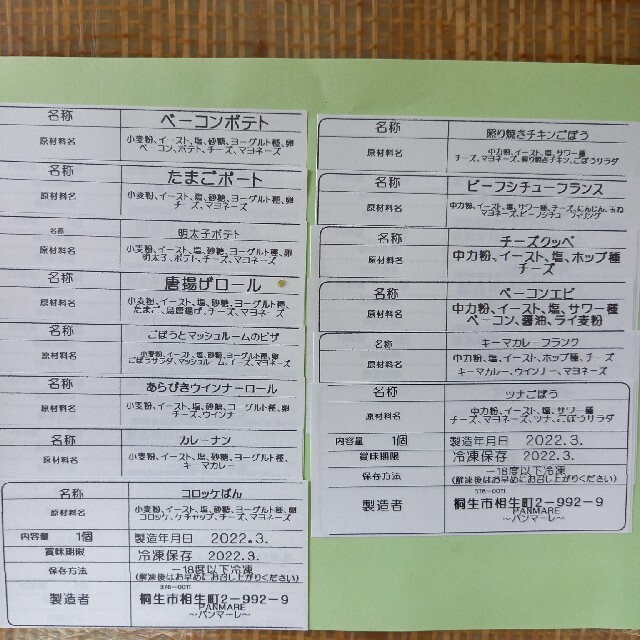 名称 ベーコンポテト
原材料名 小麦粉、イースト、塩、砂糖、ヨーグルト種、卵
ベーコン、ポテト、チーズ、マヨネーズ
名称 たまごボート
原材料名 小麦粉、イースト、塩、砂糖、ヨーグルト種、卵
チーズ、マヨネーズ
名称 明太子ポテト
原材料名 小麦粉、イースト、塩、砂糖、ヨーグルト種、卵
明太子、ポテト、チーズ、マヨネーズ
名称 唐揚げロール
原材料名 小麦粉、イースト、塩、砂糖、ヨーグルト種、
たまご、鳥唐揚げ、チーズ、マヨネーズ
名称 ごぼうとマッシュルームのピザ
原材料名 小麦粉、イースト、塩、砂糖、ヨーグルト種、卵
ごぼうサラダ、マッシュルーム、チーズ、マヨネーズ
名称 あらびきウインナーロール
原材料名 小麦粉、イースト、塩、砂糖、ヨーグルト種、卵
チーズ、ウインナー
名称 カレーナン
原材料名 小麦粉、イースト、塩、砂糖、ヨーグルト種、
キーマカレー
名称 コロッケぱん
原材料名 小麦粉、イースト、塩、砂糖、ヨーグルト種、卵
コロッケ、ケチャップ、チーズ、マヨネーズ
内容量 1個 製造年月日 2022.3.
賞味期限 冷凍保存 2022.3.
保存方法 −18度以下冷凍
(解凍後はお早めにお召し上がりください)
376-0011
製造者 桐生市相生町2-992-9
PANMARE
〜パンマーレ〜
名称 照り焼きチキンごぼう
原材料名 中力粉、イースト、塩、サワー種
チーズ、マヨネーズ、照り焼きチキン、ごぼうサラダ
名称 ビーフシチューフランス
原材料名 中力粉、イースト、塩、サワー種、チーズ、にんじん、玉ねぎ
マヨネーズ、ビーフシチューフィリング
名称 チーズクッペ
原材料名 中力粉、イースト、塩、ホップ種
チーズ
名称 ベーコンエピ
原材料名 中力粉、イースト、塩、サワー種
ベーコン、醤油、ライ麦粉
名称 キーマカレーフランク
原材料名 中力粉、塩、イースト、ホップ種、チーズ
キーマカレー、ウインナー、マヨネーズ
名称 ツナごぼう
原材料名 中力粉、イースト、塩、サワー種
チーズ、マヨネーズ、ツナ、ごぼうサラダ
内容量 1個 製造年月日 2022.3.
賞味期限 冷凍保存 2022.3.
保存方法 −18度以下冷凍
(解凍後はお早めにお召し上がりください)
376-0011
製造者 桐生市相生町2-992-9
PANMARE
〜パンマーレ〜